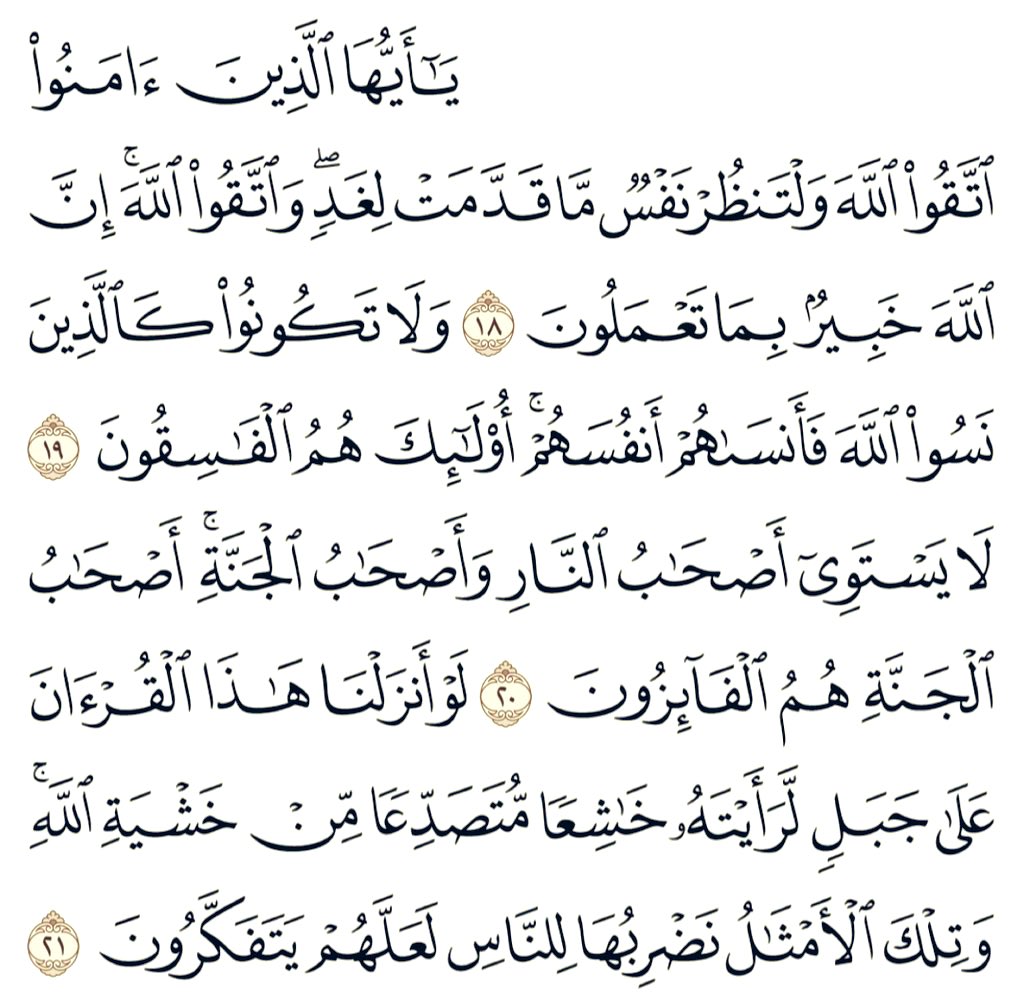 يَـٰٓأَيُّهَا ٱلَّذِينَ ءَامَنُوا۟
ٱتَّقُوا۟ ٱللَّهَ وَلْتَنظُرْ نَفْسٌ مَّا قَدَّمَتْ لِغَدٍ ۖ وَٱتَّقُوا۟ ٱللَّهَ ۚ إِنَّ
ٱللَّهَ خَبِيرٌۢ بِمَا تَعْمَلُونَ ١٨ وَلَا تَكُونُوا۟ كَٱلَّذِينَ
نَسُوا۟ ٱللَّهَ فَأَنسَىٰهُمْ أَنفُسَهُمْ ۚ أُو۟لَـٰٓئِكَ هُمُ ٱلْفَـٰسِقُونَ ١٩
لَا يَسْتَوِىٓ أَصْحَـٰبُ ٱلنَّارِ وَأَصْحَـٰبُ ٱلْجَنَّةِ ۚ أَصْحَـٰبُ
ٱلْجَنَّةِ هُمُ ٱلْفَآئِزُونَ ٢٠ لَوْ أَنزَلْنَا هَـٰذَا ٱلْقُرْءَانَ
عَلَىٰ جَبَلٍ لَّرَأَيْتَهُۥ خَـٰشِعًا مُّتَصَدِّعًا مِّنْ خَشْيَةِ ٱللَّهِ ۚ
وَتِلْكَ ٱلْأَمْثَـٰلُ نَضْرِبُهَا لِلنَّاسِ لَعَلَّهُمْ يَتَفَكَّرُونَ ٢١